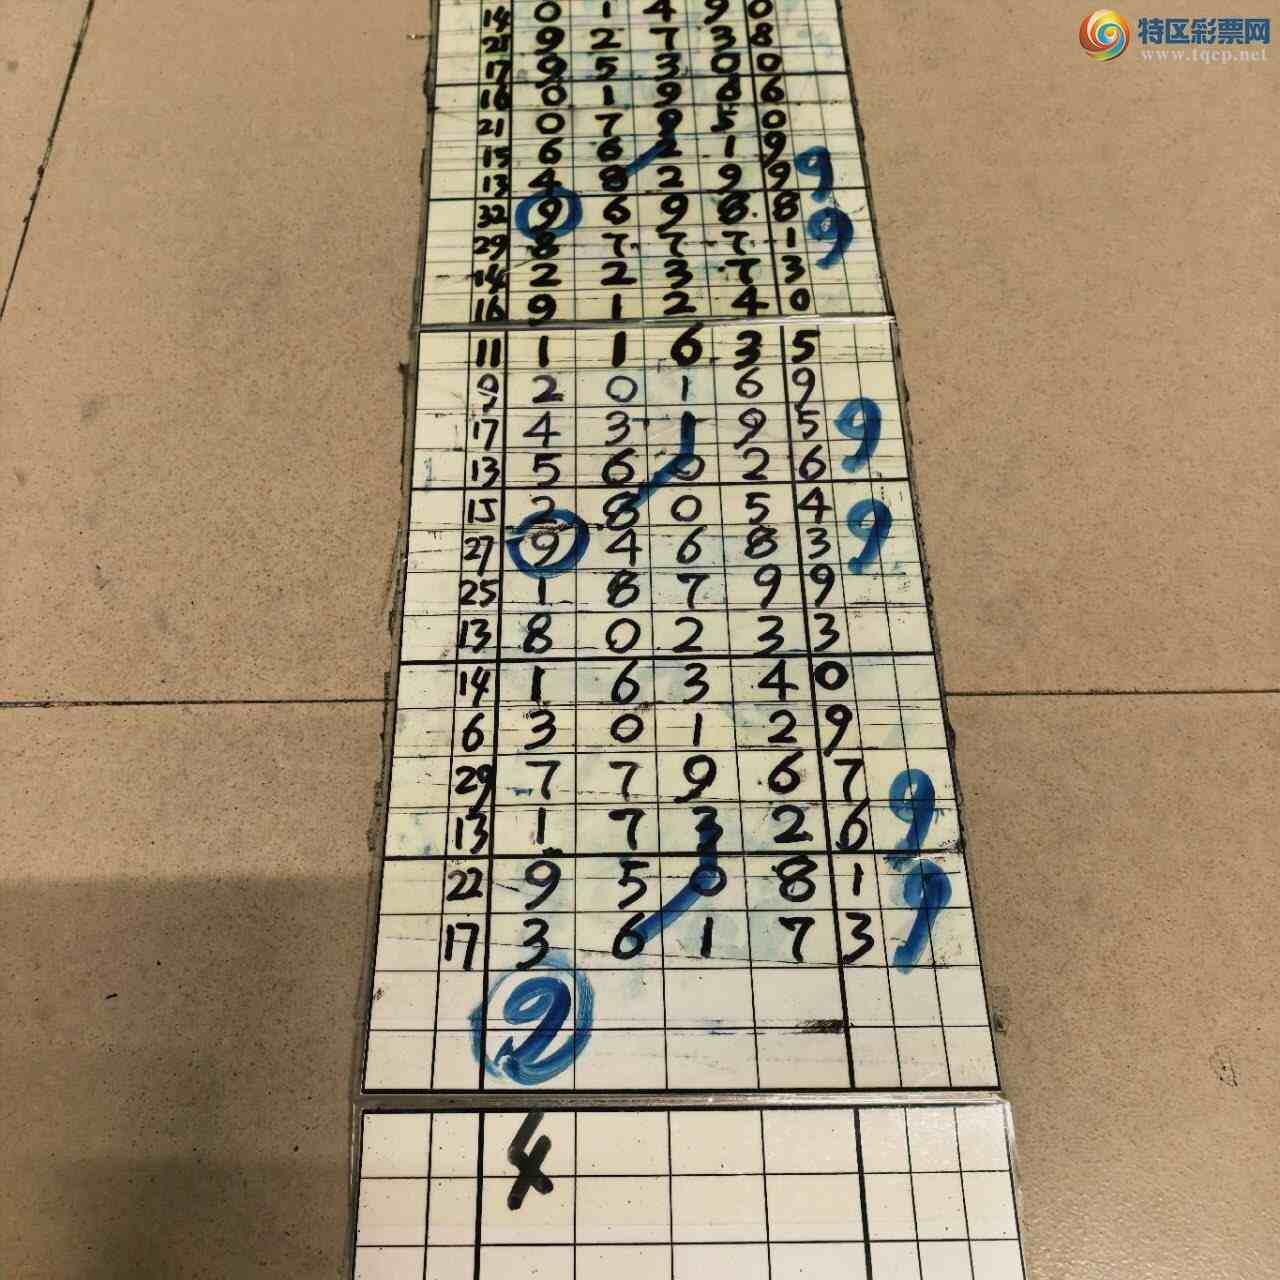 特区彩票网
www.tqcp.net
14 0 1 4 9 0
21 9 2 7 3 8
17 9 5 3 0 0
16 0 1 9 6 6
21 0 7 9 5 0
15 6 6 2 1 9
13 4 8 2 9 9 9
32 9 6 9 8 8
29 8 7 7 7 1 9
14 2 2 3 7 3
16 9 1 2 4 0
11 1 1 6 3 5
9 2 0 1 6 9
17 4 3 1 9 5 9
13 5 6 0 2 6
15 2 8 0 5 4 9
27 9 4 6 8 3
25 1 8 7 9 9
13 8 0 2 3 3
14 1 6 3 4 0
6 3 0 1 2 9
29 7 7 9 6 7 9
13 1 7 3 2 6
22 9 5 0 8 1 9
17 3 6 1 7 3
4